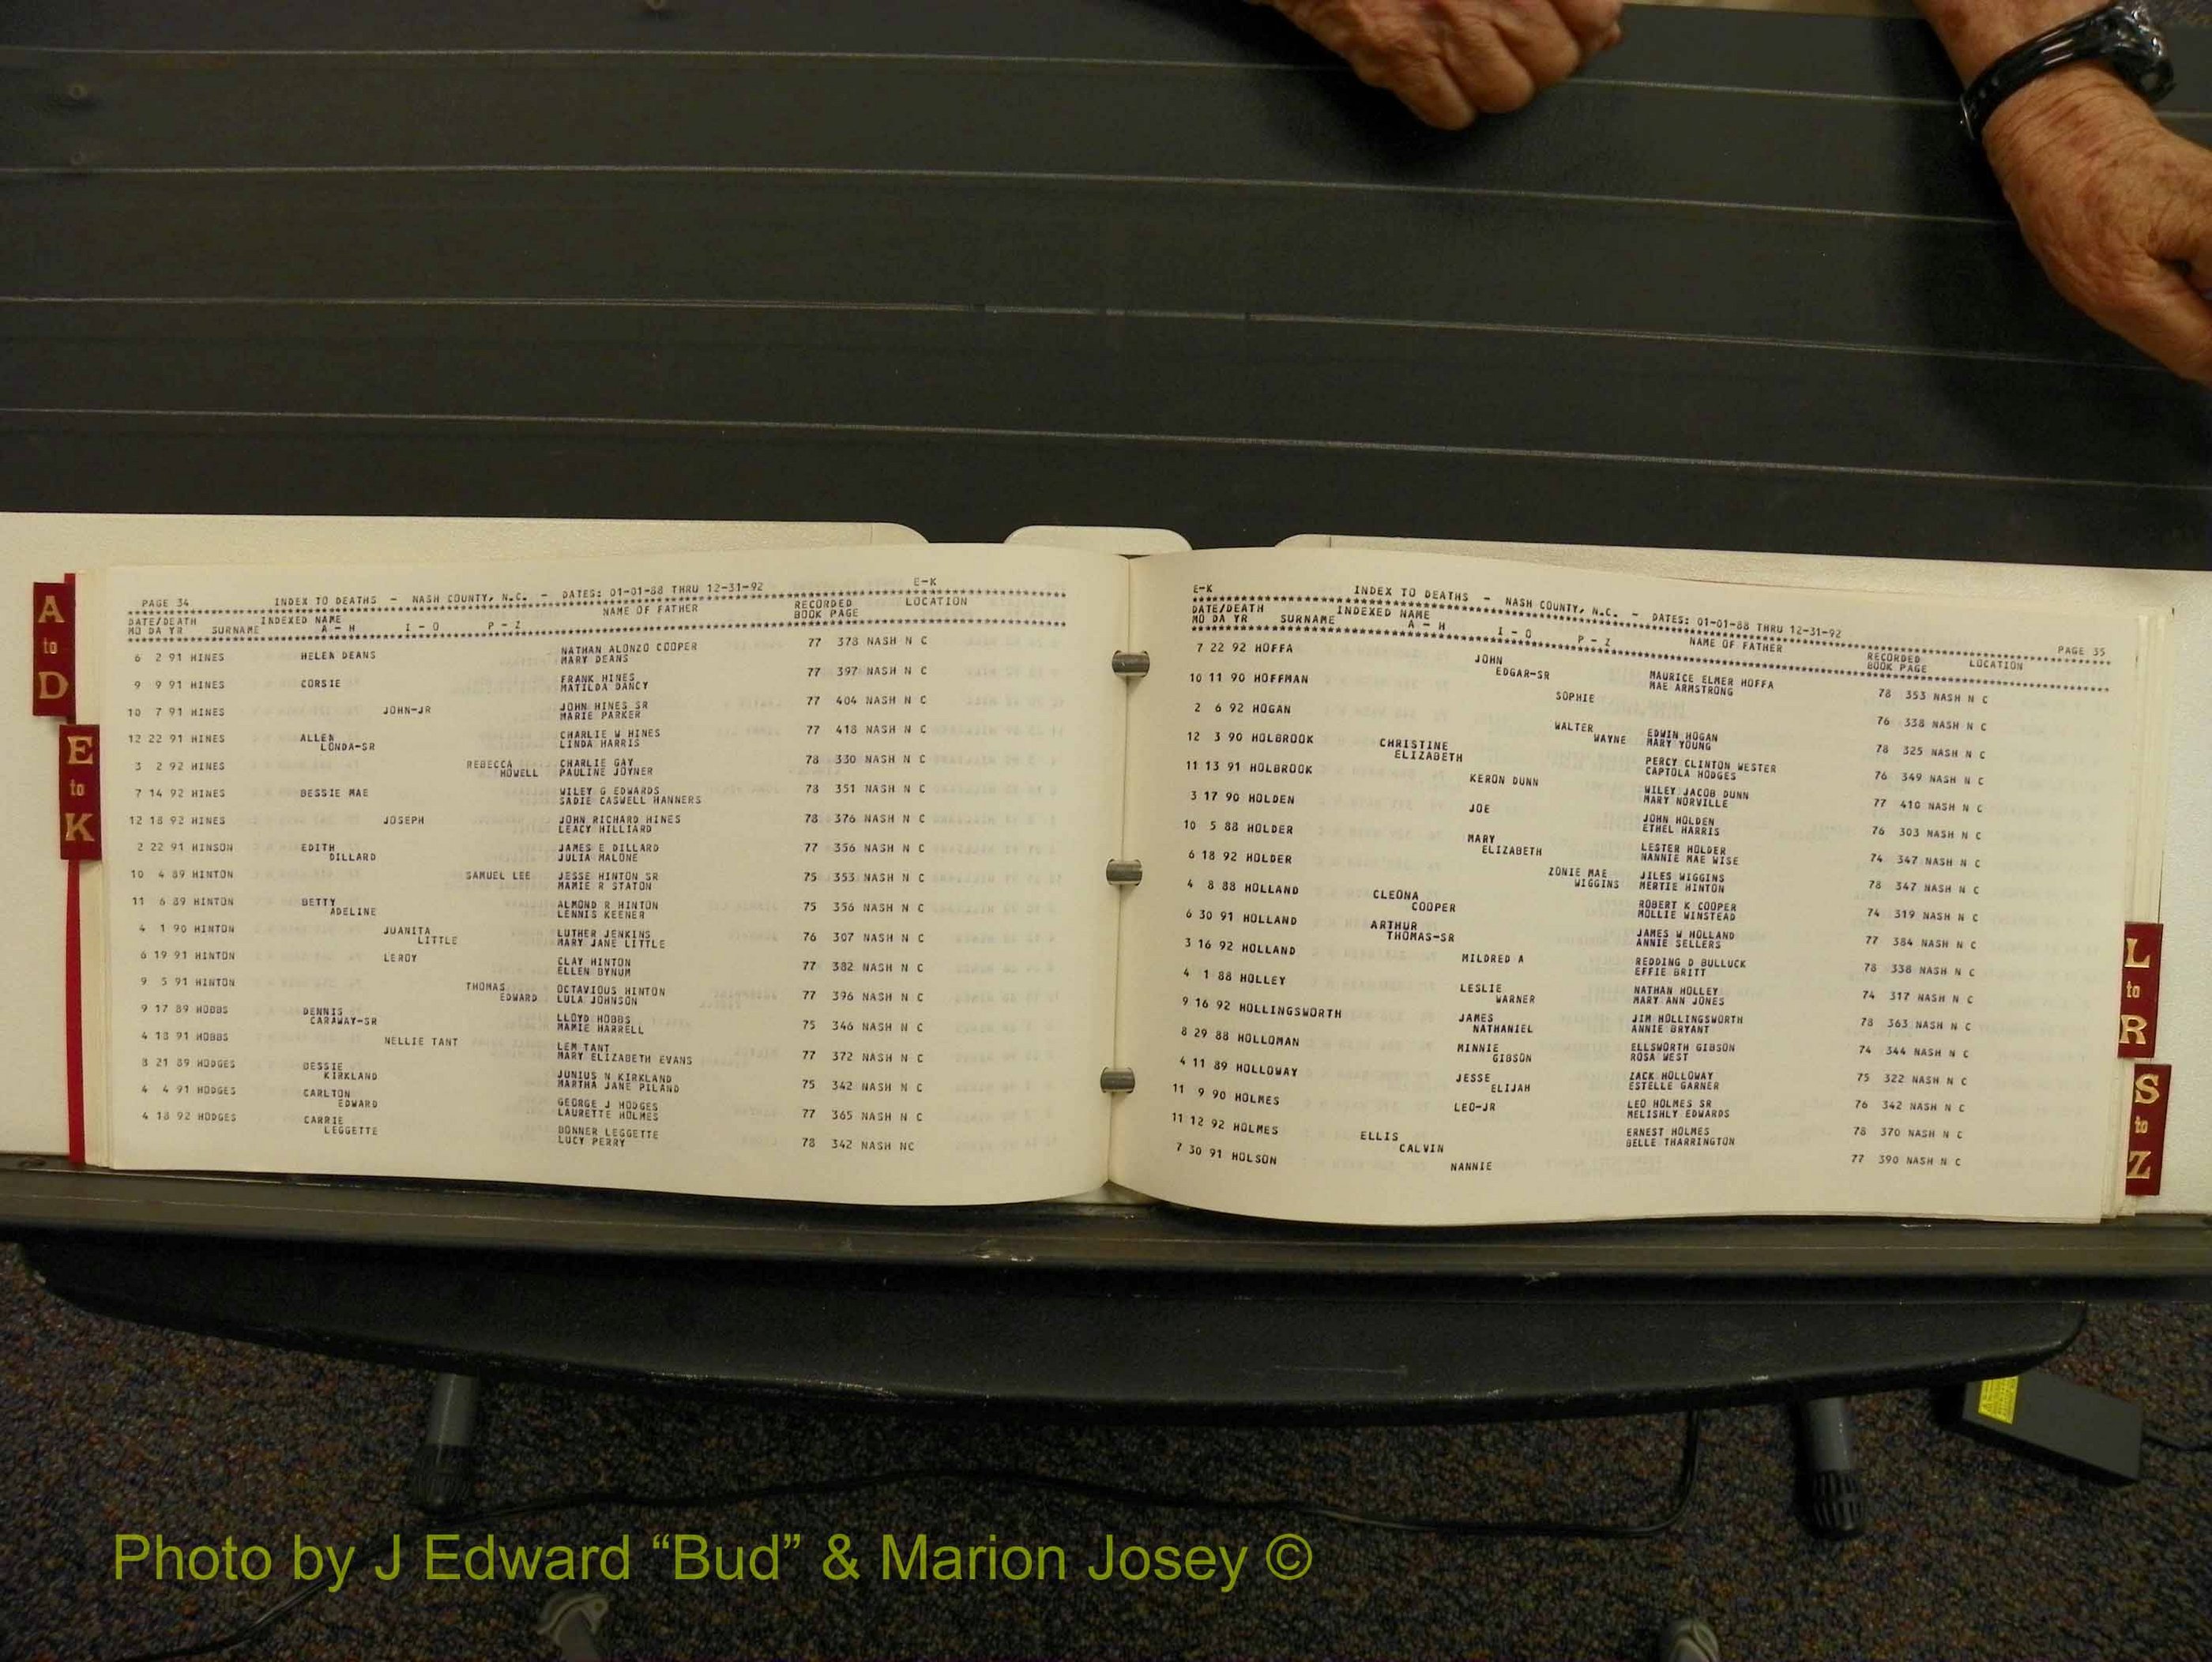 A
to
D
E
to
K
PAGE 34 INDEX TO DEATHS - NASH COUNTY, N.C. - DATES: 01-01-88 THRU 12-31-92 E-K
DATE/DEATH INDEXED NAME NAME OF FATHER RECORDED LOCATION
MO DA YR SURNAME A - H I - O P - Z BOOK PAGE
6 2 91 HINES HELEN DEANS NATHAN ALONZO COOPER 77 378 NASH N C
MARY DEANS
9 9 91 HINES CORSIE FRANK HINES 77 397 NASH N C
MATILDA DANCY
10 7 91 HINES JOHN-JR JOHN HINES SR 77 404 NASH N C
MARIE PARKER
12 22 91 HINES ALLEN CHARLIE W HINES 77 418 NASH N C
LONDA-SR LINDA HARRIS
3 2 92 HINES REBECCA CHARLIE GAY 78 330 NASH N C
HOWELL PAULINE JOYNER
7 14 92 HINES BESSIE MAE WILEY G EDWARDS 78 351 NASH N C
SADIE CASWELL HANNERS
12 18 92 HINES JOSEPH JOHN RICHARD HINES 78 376 NASH N C
LEACY HILLIARD
2 22 91 HINSON EDITH JAMES E DILLARD 77 356 NASH N C
DILLARD JULIA MALONE
10 4 89 HINTON SAMUEL LEE JESSE HINTON SR 75 353 NASH N C
MAMIE R STATON
11 6 89 HINTON BETTY ALMOND R HINTON 75 356 NASH N C
ADELINE LENNIS KEENER
4 1 90 HINTON JUANITA LUTHER JENKINS 76 307 NASH N C
LITTLE MARY JANE LITTLE
6 19 91 HINTON LEROY CLAY HINTON 77 382 NASH N C
ELLEN BYNUM
9 5 91 HINTON THOMAS OCTAVIOUS HINTON 77 396 NASH N C
EDWARD LULA JOHNSON
9 17 89 HOBBS DENNIS LLOYD HOBBS 75 346 NASH N C
CARAWAY-SR MAMIE HARRELL
4 18 91 HOBBS NELLIE TANT LEM TANT 77 372 NASH N C
MARY ELIZABETH EVANS
8 21 89 HODGES BESSIE JUNIUS N KIRKLAND 75 342 NASH N C
KIRKLAND MARTHA JANE PILAND
4 4 91 HODGES CARLTON GEORGE J HODGES 77 365 NASH N C
EDWARD LAURETTE HOLMES
4 18 92 HODGES CARRIE BONNER LEGGETTE 78 342 NASH NC
LEGGETTE LUCY PERRY
E-K INDEX TO DEATHS - NASH COUNTY, N.C. - DATES: 01-01-88 THRU 12-31-92 PAGE 35
DATE/DEATH INDEXED NAME NAME OF FATHER RECORDED LOCATION
MO DA YR SURNAME A - H I - O P - Z BOOK PAGE
7 22 92 HOFFA JOHN MAURICE ELMER HOFFA 78 353 NASH N C
EDGAR-SR MAE ARMSTRONG
10 11 90 HOFFMAN SOPHIE 76 338 NASH N C
2 6 92 HOGAN WALTER EDWIN HOGAN 78 325 NASH N C
WAYNE MARY YOUNG
12 3 90 HOLBROOK CHRISTINE PERCY CLINTON WESTER 76 349 NASH N C
ELIZABETH CAPTOLA HODGES
11 13 91 HOLBROOK KERON DUNN WILEY JACOB DUNN 77 410 NASH N C
MARY NORVILLE
3 17 90 HOLDEN JOE JOHN HOLDEN 76 303 NASH N C
ETHEL HARRIS
10 5 88 HOLDER MARY LESTER HOLDER 74 347 NASH N C
ELIZABETH NANNIE MAE WISE
6 18 92 HOLDER ZONIE MAE JILES WIGGINS 78 347 NASH N C
WIGGINS MERTIE HINTON
4 8 88 HOLLAND CLEONA ROBERT K COOPER 74 319 NASH N C
COOPER MOLLIE WINSTEAD
6 30 91 HOLLAND ARTHUR JAMES W HOLLAND 77 384 NASH N C
THOMAS-SR ANNIE SELLERS
3 16 92 HOLLAND MILDRED A REDDING D BULLUCK 78 338 NASH N C
EFFIE BRITT
4 1 88 HOLLEY LESLIE NATHAN HOLLEY 74 317 NASH N C
WARNER MARY ANN JONES
9 16 92 HOLLINGSWORTH JAMES JIM HOLLINGSWORTH 78 363 NASH N C
NATHANIEL ANNIE BRYANT
8 29 88 HOLLOMAN MINNIE ELLSWORTH GIBSON 74 344 NASH N C
GIBSON ROSA WEST
4 11 89 HOLLOWAY JESSE ZACK HOLLOWAY 75 322 NASH N C
ELIJAH ESTELLE GARNER
11 9 90 HOLMES LEO-JR LEO HOLMES SR 76 342 NASH N C
MELISHLY EDWARDS
11 12 92 HOLMES ELLIS ERNEST HOLMES 78 370 NASH N C
CALVIN BELLE THARRINGTON
7 30 91 HOLSON NANNIE 77 390 NASH N C
L
to
R
S
to
Z
Photo by J Edward “Bud” & Marion Josey ©